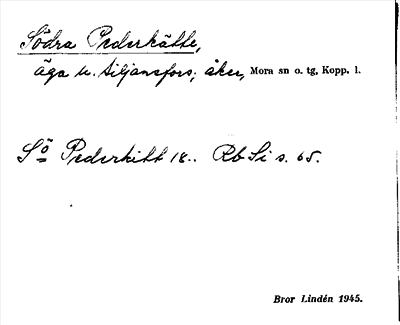 Södra Pederkätte,
äga u. Siljansfors, åker, Mora sn o. tg, Kopp. l.
Sö Pederkitt 18.. Rb Si s. 65.
Bror Lindén 1945.